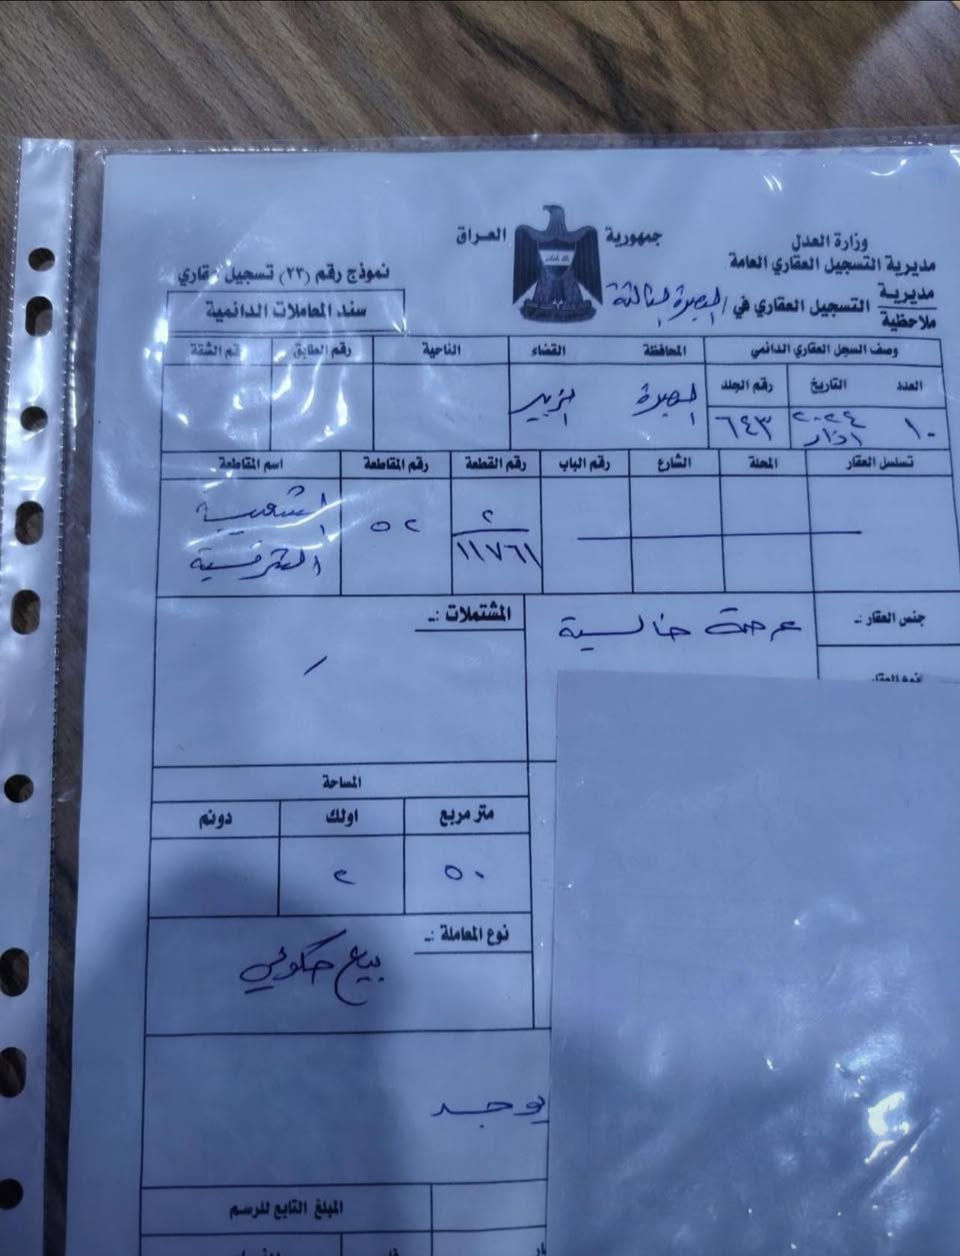 جمهورية العراق
وزارة العدل
مديرية التسجيل العقاري العامة
مديرية
ملاحظية
التسجيل العقاري في البصرة الثالثة
نموذج رقم (٢٣) تسجيل عقاري
سند المعاملات الدائمية
وصف السجل العقاري الدائمي المحافظة القضاء الناحية رقم الطابق رقم الشقة
العدد التاريخ رقم الجلد
١٠ ٢٠٢٤ اذار ٦٤٣ البصرة الزبير
تسلسل العقار المحلة الشارع رقم الباب رقم القطعة رقم المقاطعة اسم المقاطعة
٢
١١٧٦١
٥٢
الشعيبة
الشرقية
جنس العقار :- عرصة خالية
المشتملات :-
نوع العقار
المساحة
متر مربع اولك دونم
٥٠ ٢
نوع المعاملة :-
بيع حكومي
يوجد
المبلغ التابع للرسم